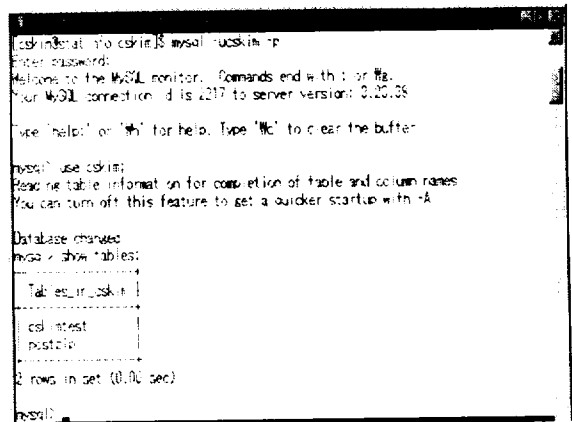 [cskim@stat-info cskim]$ mysql -ucskim -p
Enter password:
Welcome to the MySQL monitor. Commands end with ; or ₩g.
Your MySQL connection id is 2217 to server version:

Type 'help;' or '₩h' for help. Type '₩c' to clear the buffer

mysql> use cskim;
Reading table information for completion of table and column names
You can turn off this feature to get a quicker startup with -A

Database changed
mysql> show tables;
Tables_in_cskim
cskimtest
postzip
2 rows in set (0.00 sec)

mysql>